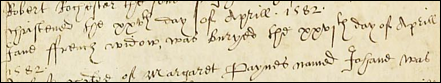 Robert Rogister the
Cristened the xxth day of Aprill. 1582.
Jane ffrench widow, was buryed the xxvith day of Aprill
1582.
of Margaret Paynes named Johane was